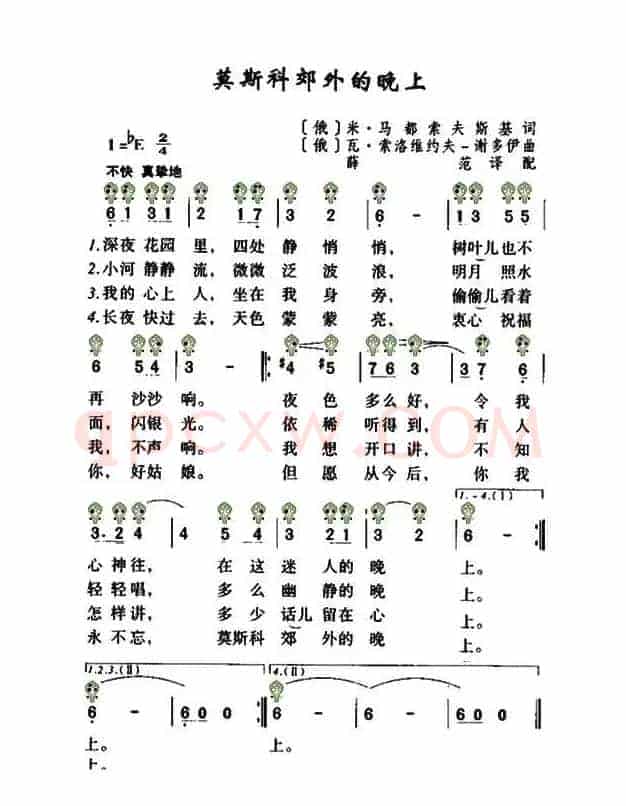 莫斯科郊外的晚上
1=♭E 2/4
〔俄〕米·马都索夫斯基词
〔俄〕瓦·索洛维约夫-谢多伊曲
薛 范译配
不快 真挚地
6 1 3 1 | 2 1 7 | 3 2 | 6 - | 1 3 5 5
1.深夜 花园 里, 四处 静 悄 悄, 树叶儿也不
2.小河 静静 流, 微微 泛 波 浪, 明月 照水
3.我的 心上 人, 坐在 我 身 旁, 偷偷儿看着
4.长夜 快过 去, 天色 蒙 蒙 亮, 衷心 祝福
6 5 4 | 3 - :‖: #4 #5 | 7 6 3 | 3 7 6
再 沙沙 响。 夜 色 多么 好, 令 我
面, 闪银 光。 依 稀 听得 到, 有 人
我, 不声 响。 我 想 开口 讲, 不 知
你, 好姑 娘。 但 愿 从今 后, 你 我
1.-4.(I)
3. 2 4 | 4 5 4 | 3 2 1 | 3 2 | 6 - :‖
心 神 往, 在 这 迷 人的 晚 上。
轻 轻 唱, 多 么 幽 静的 晚 上。
怎 样 讲, 多 少 话儿 留在 心 上。
永 不 忘, 莫斯科 郊 外的 晚 上。
1.2.3.(II) 4.(II)
6 - | 6 0 0 :‖ 6 - | 6 - | 6 0 0 ‖
上。 上。
上。
qpcxw.com